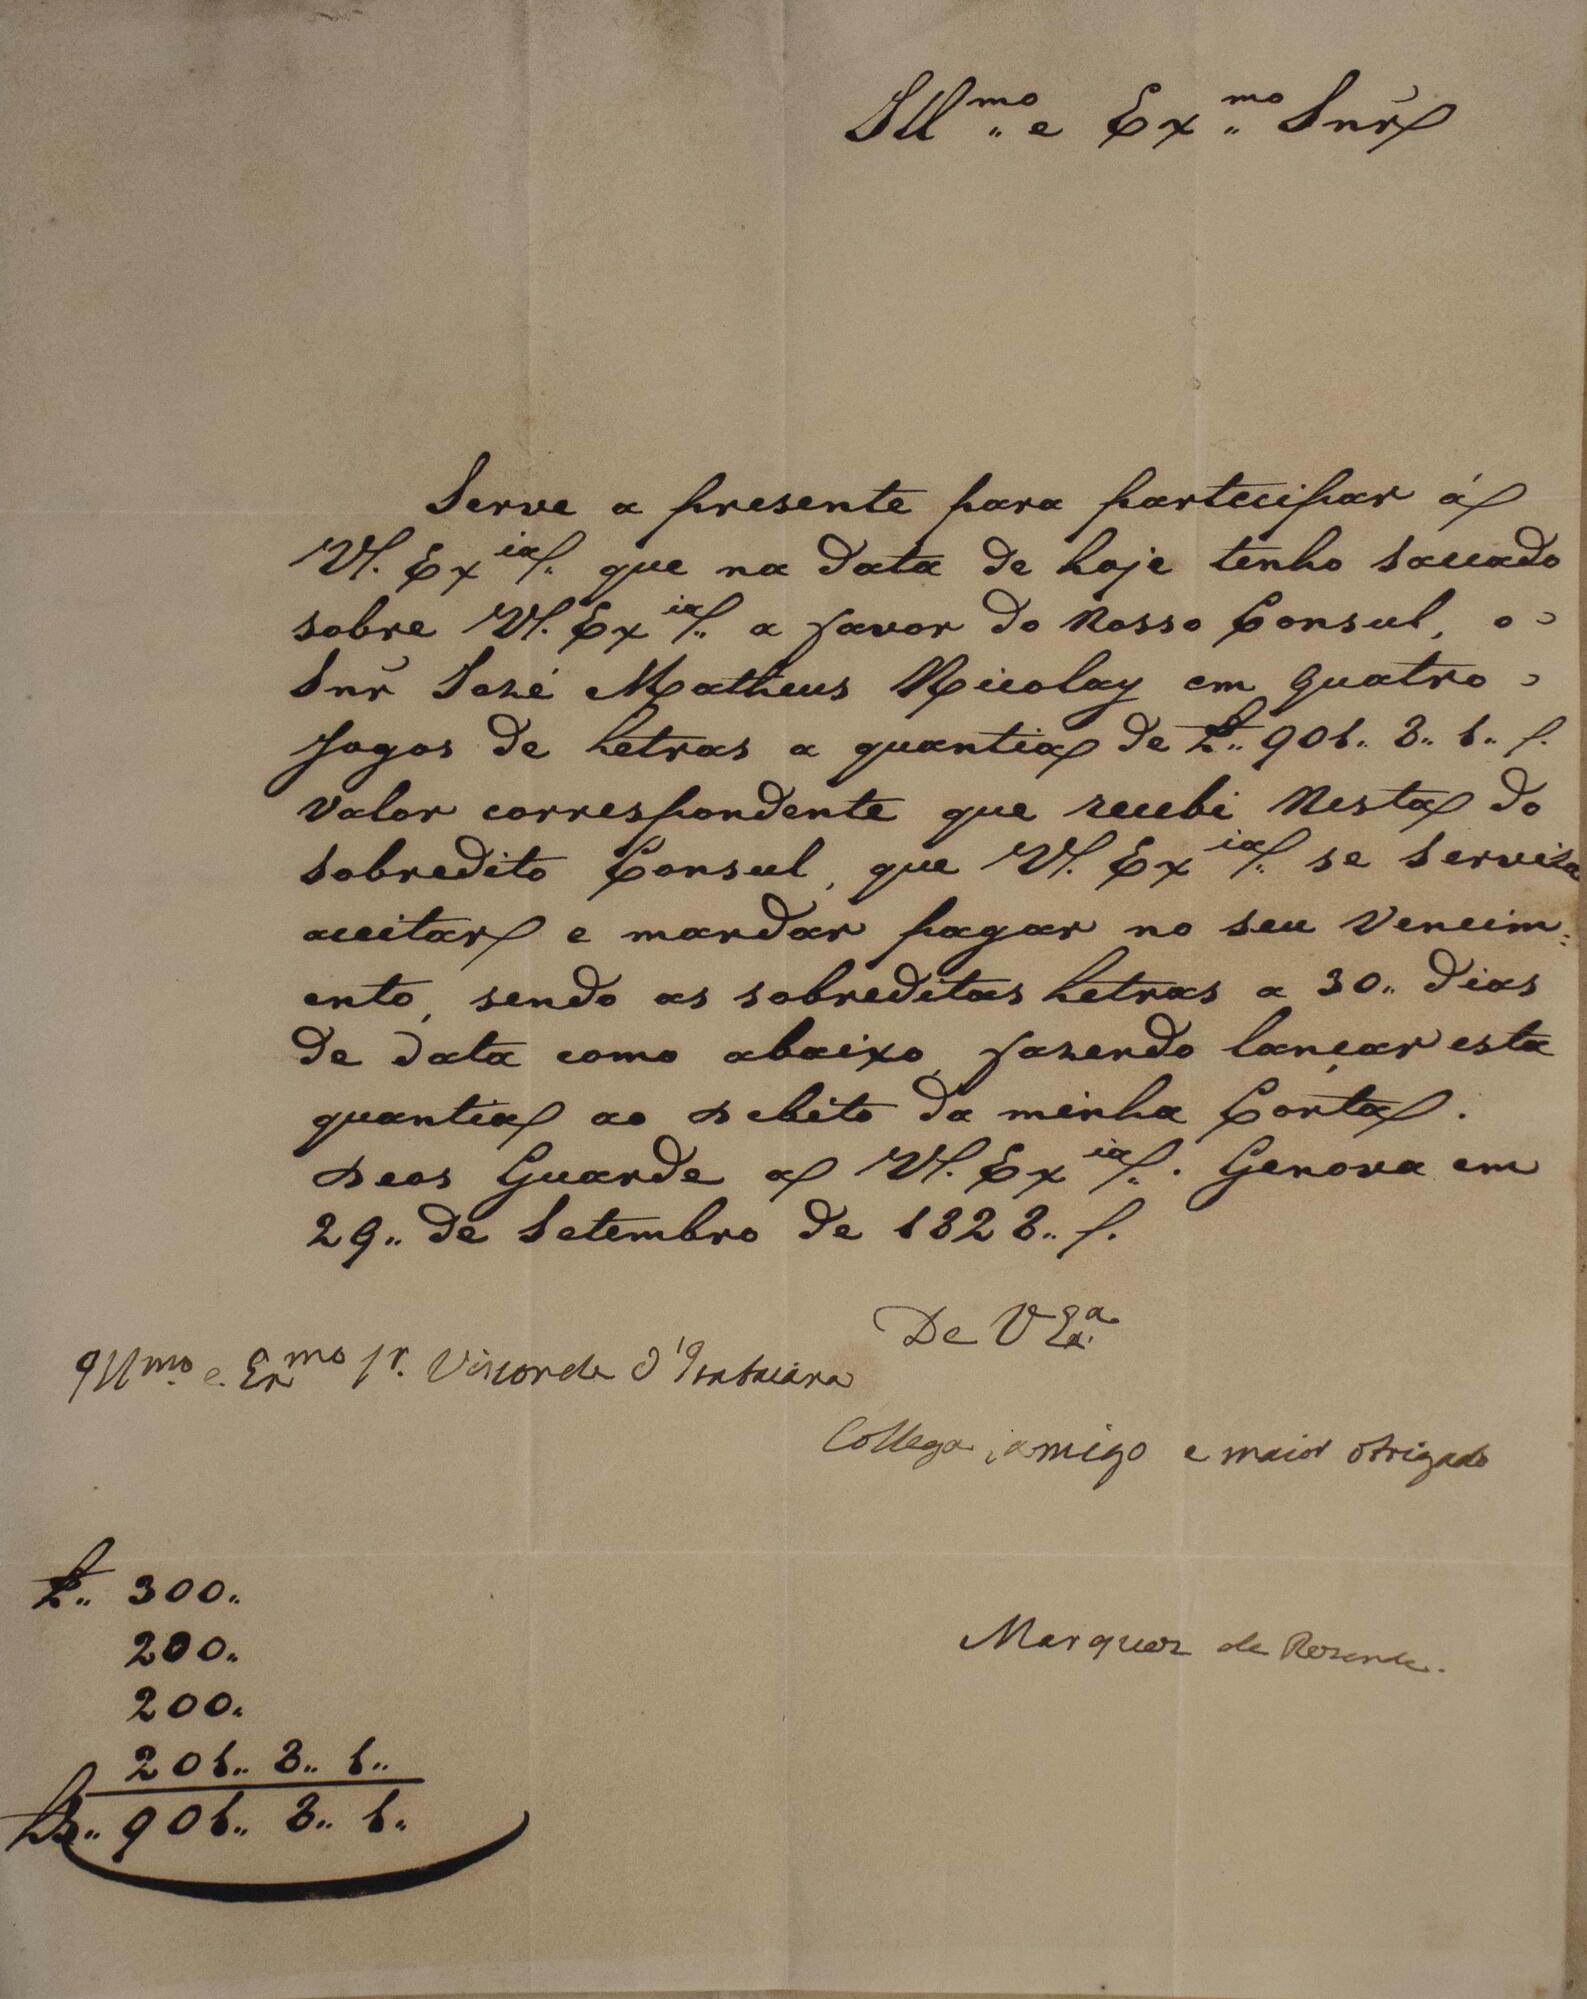 Ill.mo e Ex.mo Snr
Serve a presente para partecipar á
V. Ex.ia que na data de hoje tenho saccado
sobre V. Ex.ia a favor do Nosso Consul, o
Snr José Matheus Nicolay em quatro
Jogos de Letras a quantia de £.. 901.. 8.. 1..
Valor correspondente que recebi Nesta do
Sobredito Consul, que V. Ex.ia se servirá
acceitar e mandar pagar no seu Vencim:
ento, sendo as sobreditas Letras a 30.. dias
de data como abaixo, fazendo lançar esta
quantia ao Debito da minha Conta.
Deos Guarde a V. Ex.ia. Genova em
29.. de Setembro de 1828..
De V Ex.a
Illmo. e Exmo Sr. Visconde d'Itabaiana
Collega, amigo e maior obrigado
£.. 300..
Marquez de Rezende.
200..
200..
201.. 8.. 1..
Ls.. 901.. 8.. 1..